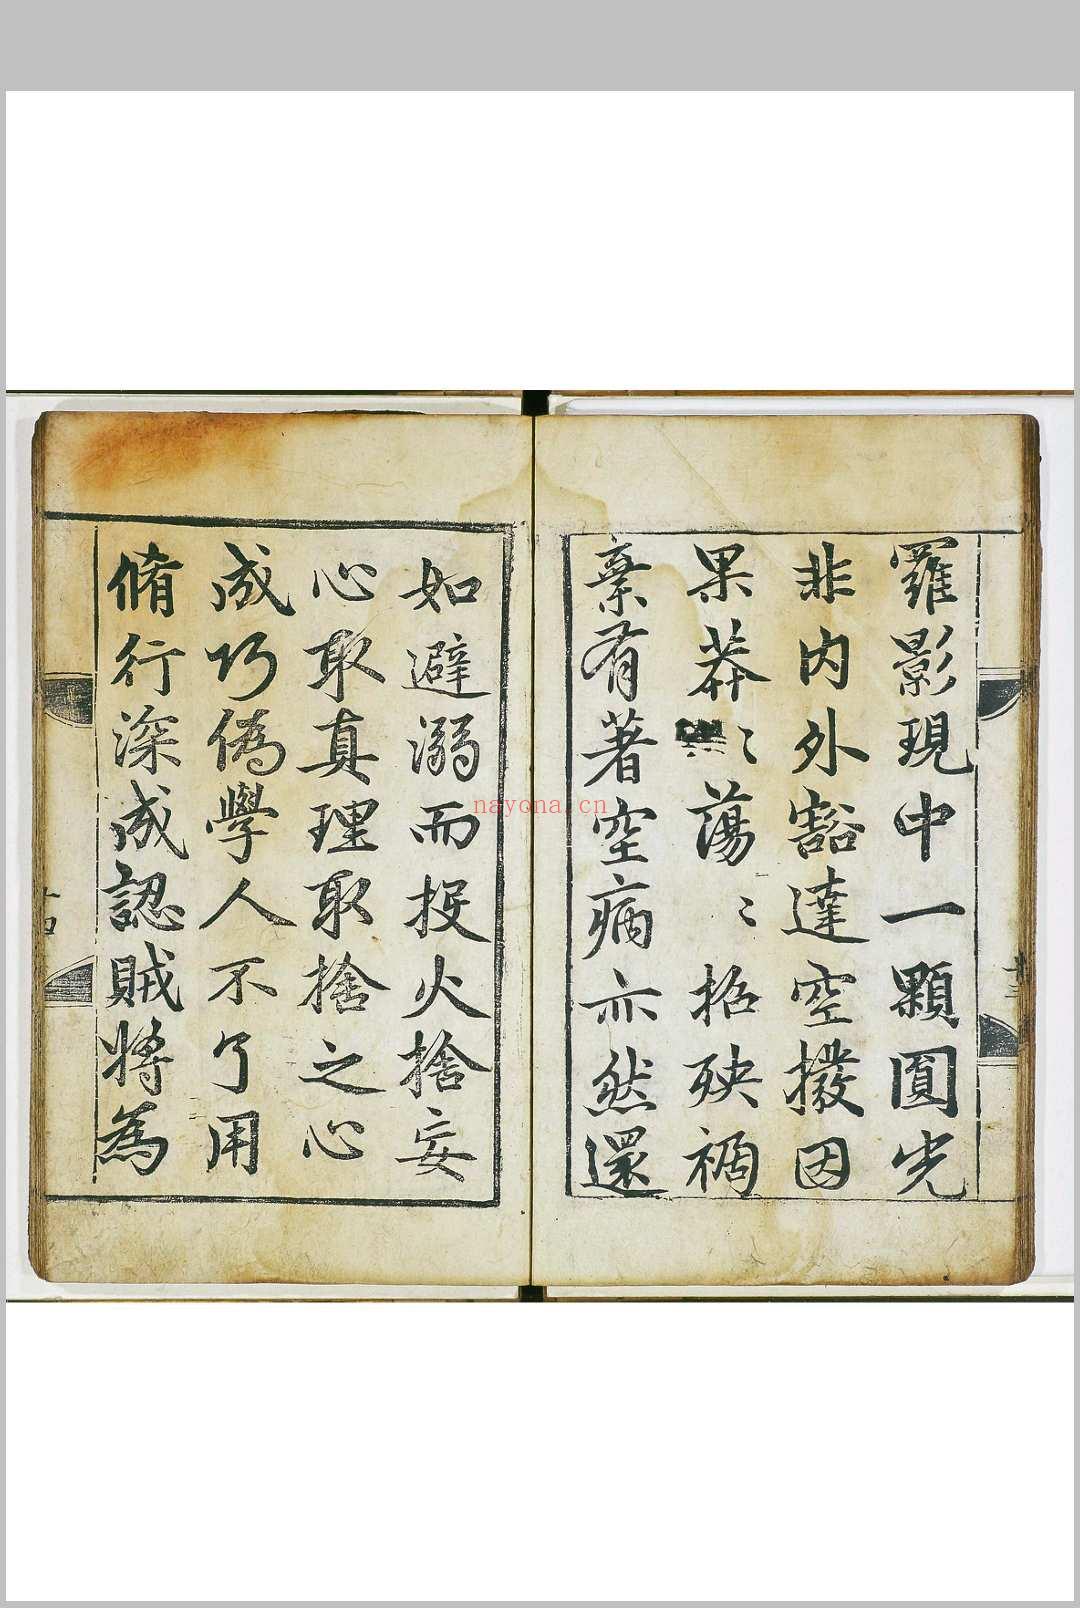 羅影現中一顆圓光
非内外豁達空撥因
果莽〻蕩〻招殃禍
棄有著空病亦然還
如避溺而投火捨妄
心取真理取捨之心
成巧偽學人不了用
脩行深成認賊將為
nayona.cn